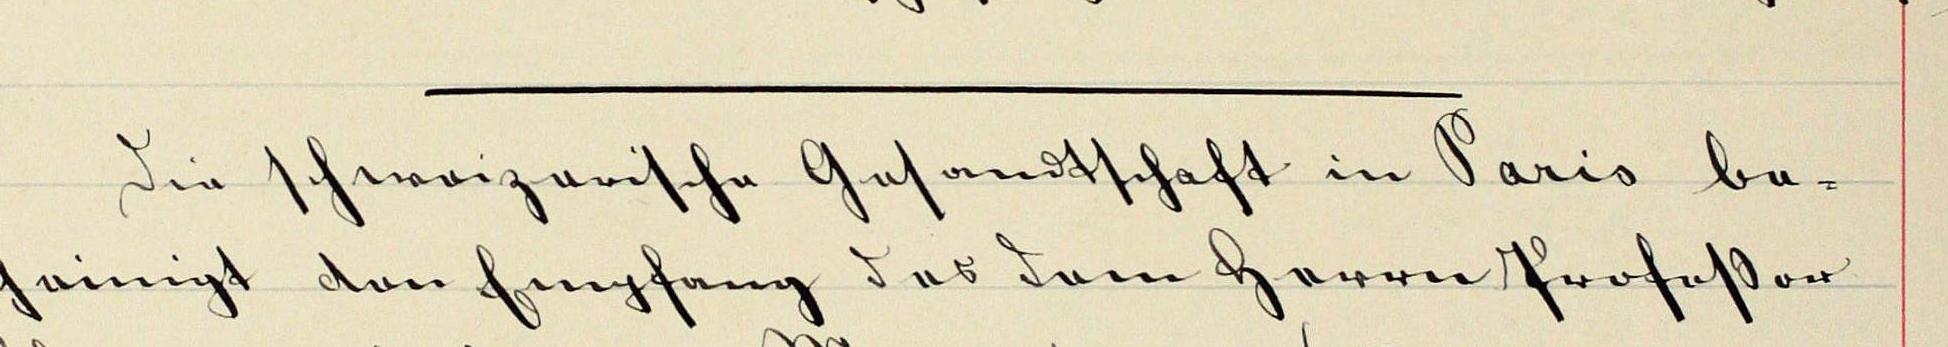 Die schweizerische Gesandtschaft in Paris be-
scheinigt den Empfang des dem Herrn Profeßor